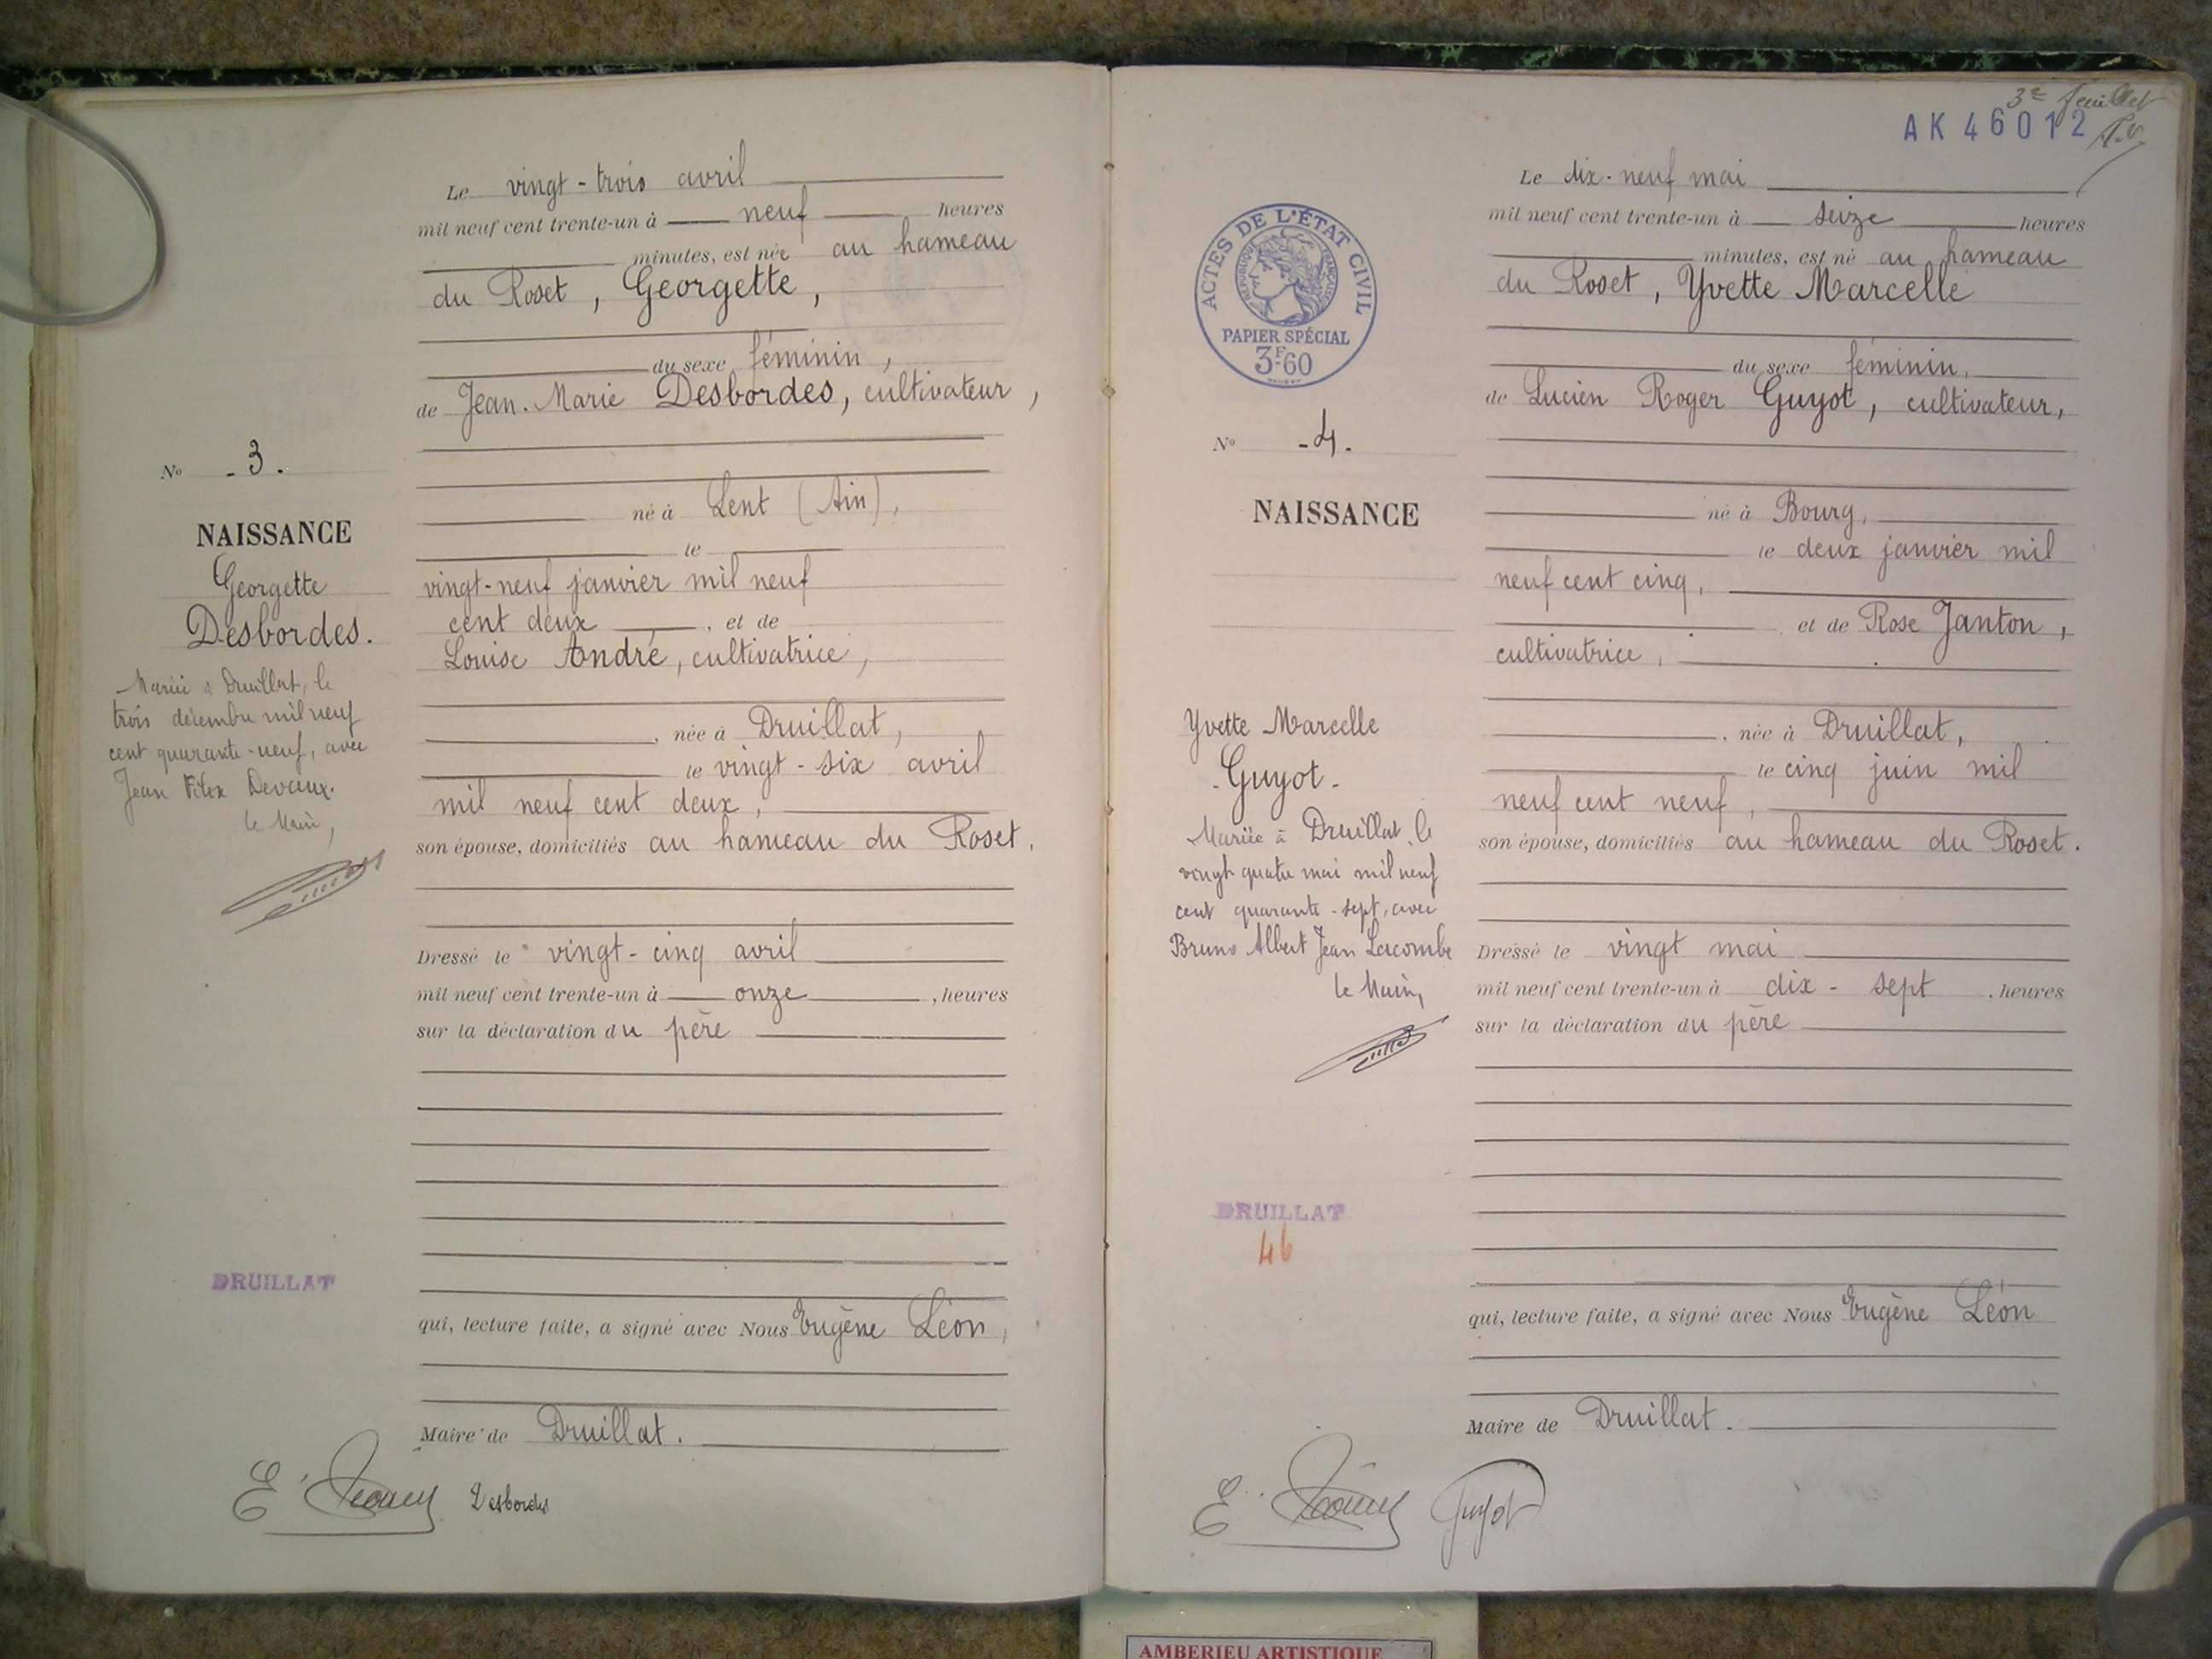 Le vingt-trois avril
mil neuf cent trente-un à neuf heures
minutes, est née au hameau
du Roset, Georgette,
du sexe féminin,
de Jean-Marie Desbordes, cultivateur,
né à Lent (Ain),
le
vingt-neuf janvier mil neuf
cent deux, et de
Louise André, cultivatrice,
née à Druillat,
le vingt-six avril
mil neuf cent deux,
son épouse, domiciliés au hameau du Roset.
Dressé le vingt-cinq avril
mil neuf cent trente-un à onze, heures
sur la déclaration du père
qui, lecture faite, a signé avec Nous Eugène Léon,
Maire de Druillat.
Desbordes
No -3.
NAISSANCE
Georgette
Desbordes.
Mariée à Druillat, le
trois décembre mil neuf
cent quarante-neuf, avec
Jean Félix Devaux.
le Maire,
DRUILLAT
3e feuillet
AK 46012
Le dix-neuf mai
mil neuf cent trente-un à seize heures
minutes, est né au hameau
du Roset, Yvette Marcelle
du sexe féminin,
de Lucien Roger Guyot, cultivateur,
né à Bourg,
le deux janvier mil
neuf cent cinq,
et de Rose Janton,
cultivatrice,
née à Druillat,
le cinq juin mil
neuf cent neuf,
son épouse, domiciliés au hameau du Roset.
Dressé le vingt mai
mil neuf cent trente-un à dix-sept, heures
sur la déclaration du père
qui, lecture faite, a signé avec Nous Eugène Léon
Maire de Druillat.
Guyot
ACTES DE L'ÉTAT CIVIL
RÉPUBLIQUE FRANÇAISE
PAPIER SPÉCIAL
3F60
No -4.
NAISSANCE
Yvette Marcelle
-Guyot-
Mariée à Druillat, le
vingt quatre mai mil neuf
cent quarante-sept, avec
Bruno Albert Jean Lacombe
le Maire,
DRUILLAT
46
AMBERIEU ARTISTIQUE